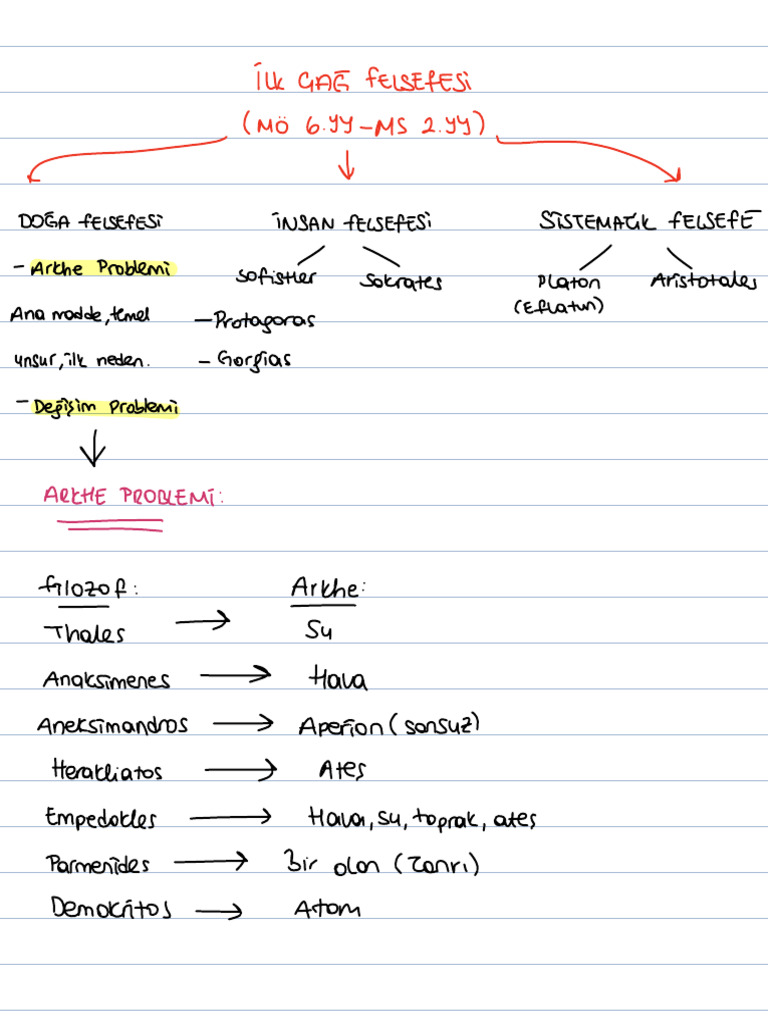 İLK ÇAĞ FELSEFESİ
(MÖ 6.YY-MS 2.YY)
DOĞA FELSEFESİ
- Arkhe Problemi
Ana madde, temel
unsur, ilk neden.
- Değişim Problemi
İNSAN FELSEFESİ
Sofistler Sokrates
- Protagoras
- Gorgias
SİSTEMATİK FELSEFE
Platon Aristotales
(Eflatun)
ARKHE PROBLEMİ:
Filozof: Arkhe:
Thales → Su
Anaksimenes → Hava
Aneksimandros → Aperion (sonsuz)
Herakliatos → Ates
Empedokles → Hava, su, toprak, ates
Parmenides → Bir olan (Tanrı)
Demokritos → Atom